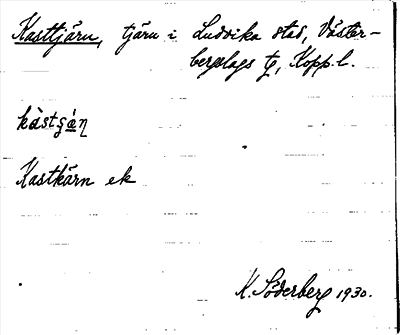 Kasttjärn, tjärn i Ludvika stad, Väster-
bergslags tg, Kopp. l.
kàstʂä́ɳ
Kastkärn ek
K. Söderberg 1930.